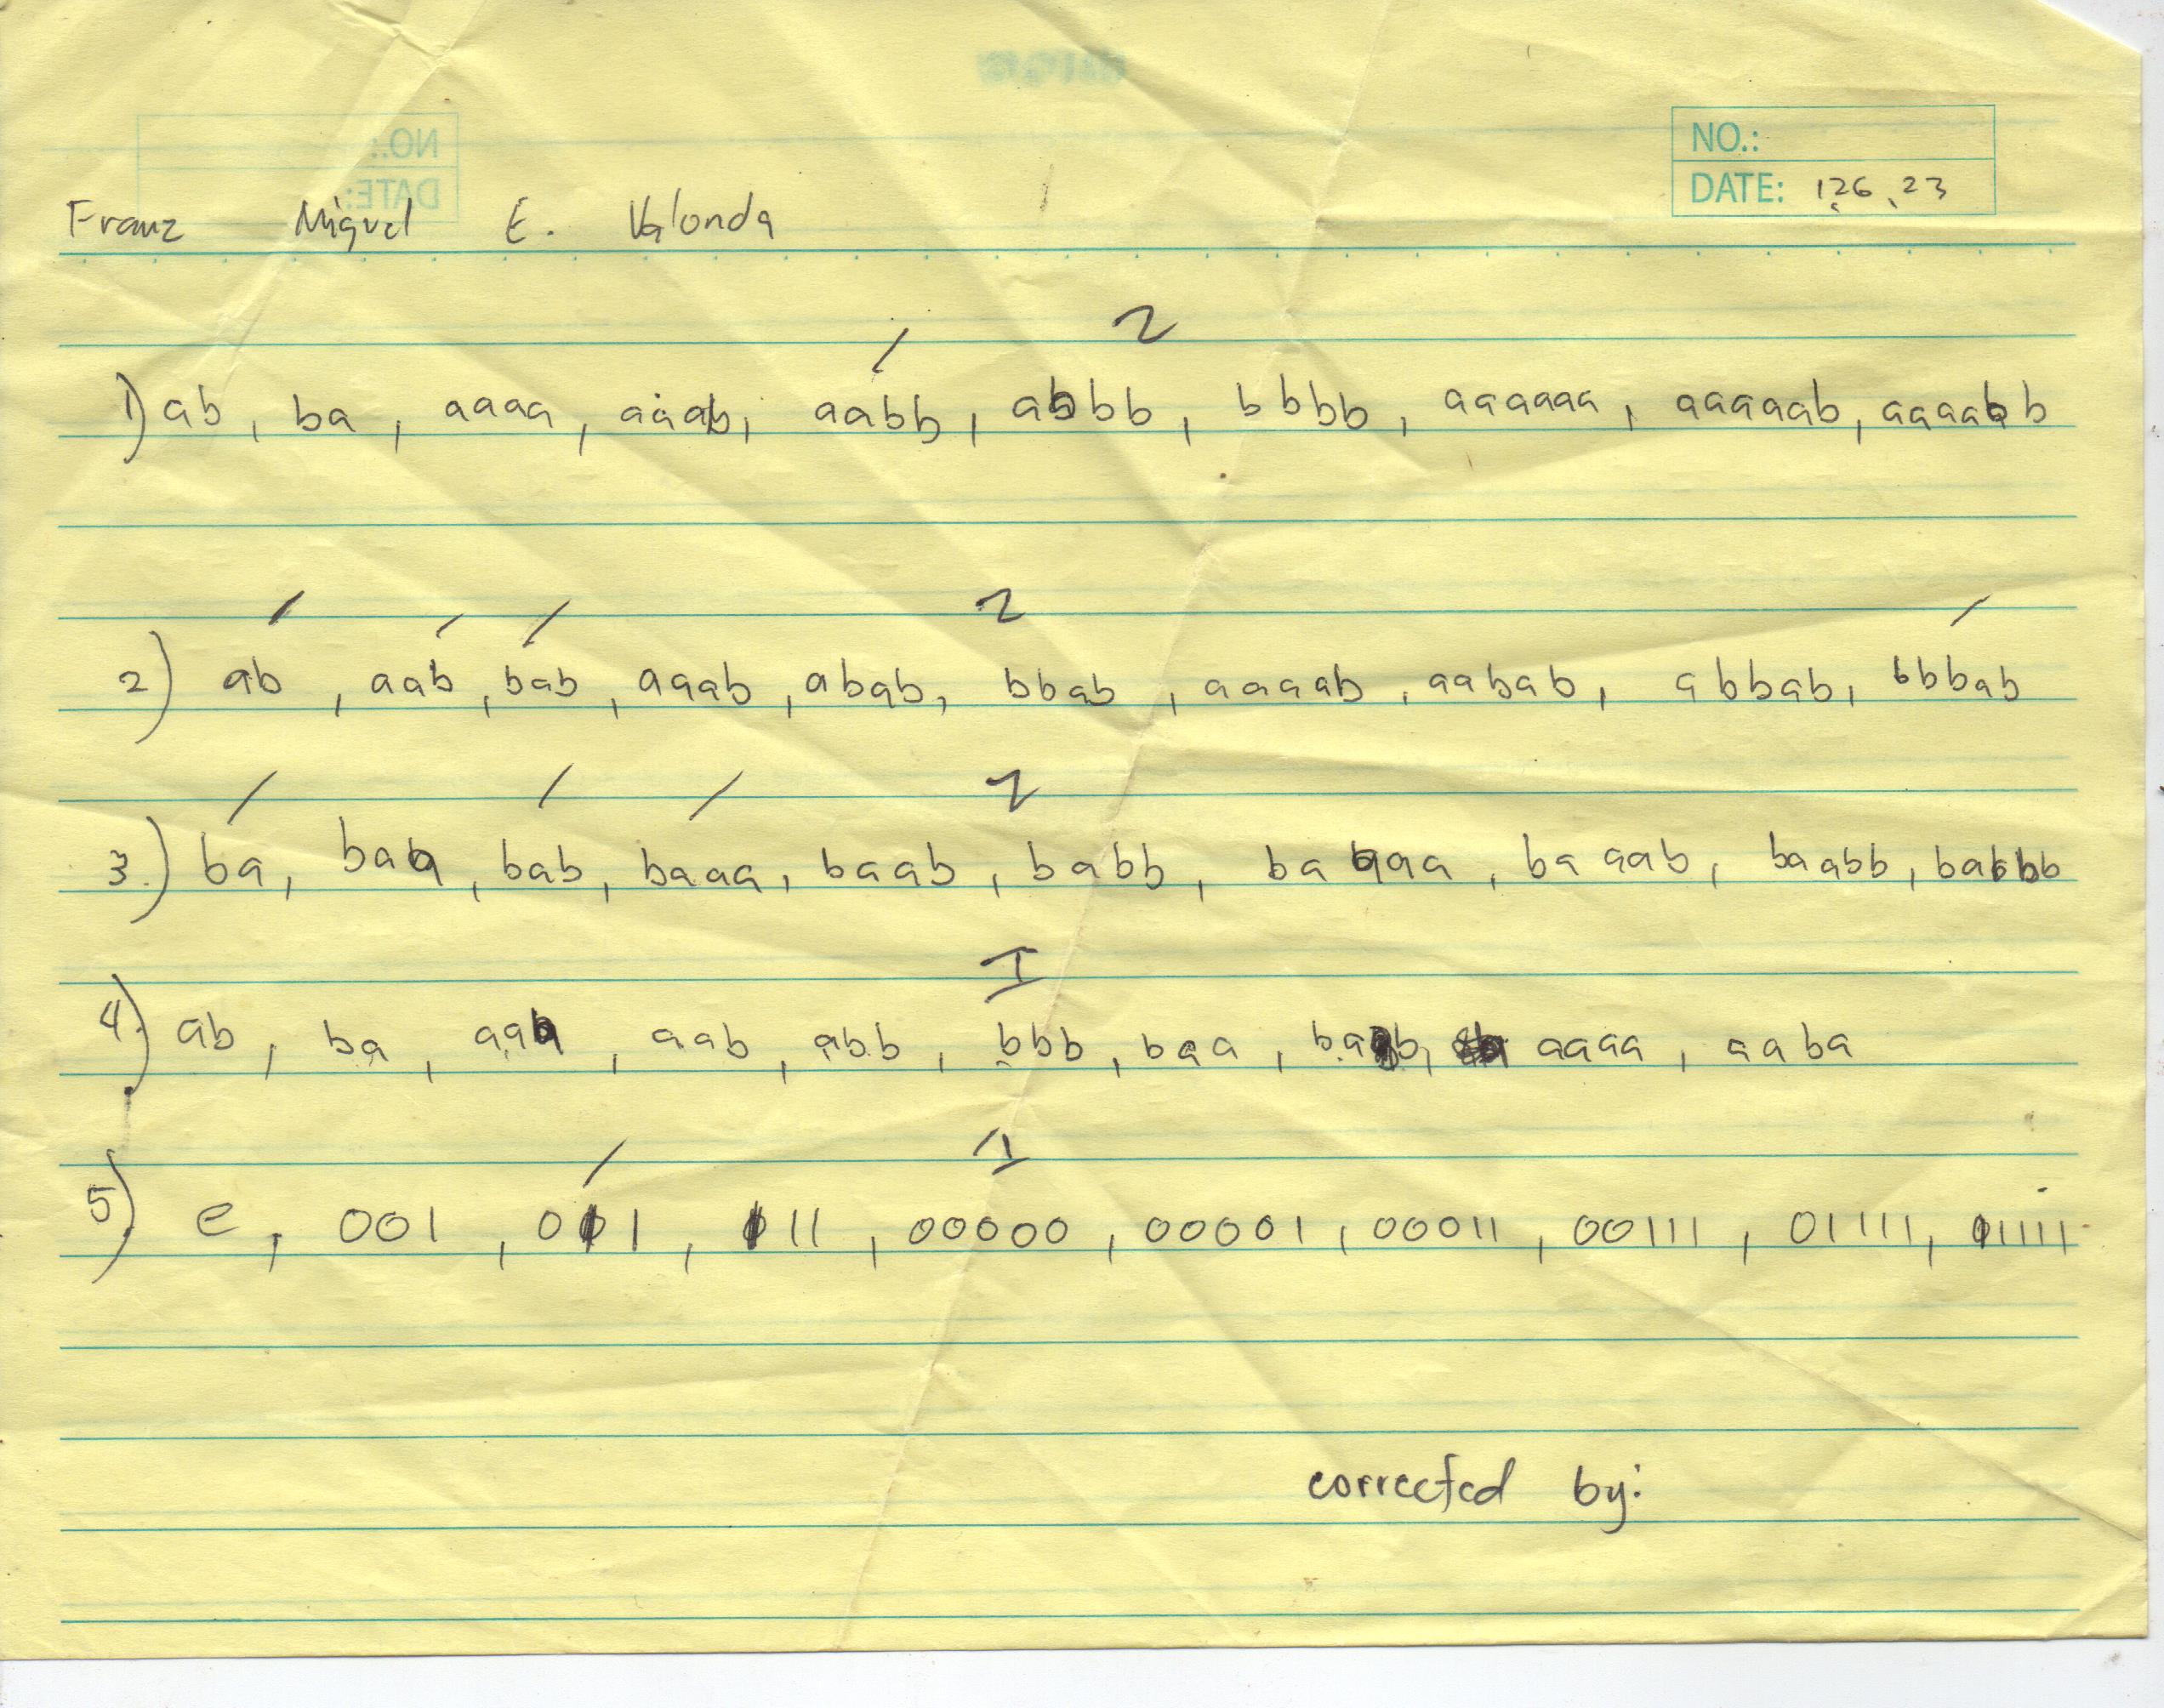 NO.:
DATE: 126.23
Franz Miguel E. Valonda
2
1) ab, ba, aaaa, aaab, aabb, abbb, bbbb, aaaaaa, aaaaab, aaaabb
2
2) ab, aab, bab, aaab, abab, bbab, aaaab, aabab, abbab, bbbab
2
3.) ba, baa, bab, baaa, baab, babb, baaaa, baaab, baabb, babbb
1
4.) ab, ba, aaa, aab, abb, bbb, baa, aaaa, aaba
1
5) e, 001, 011, 111, 00000, 00001, 00011, 00111, 01111, 11111
corrected by: